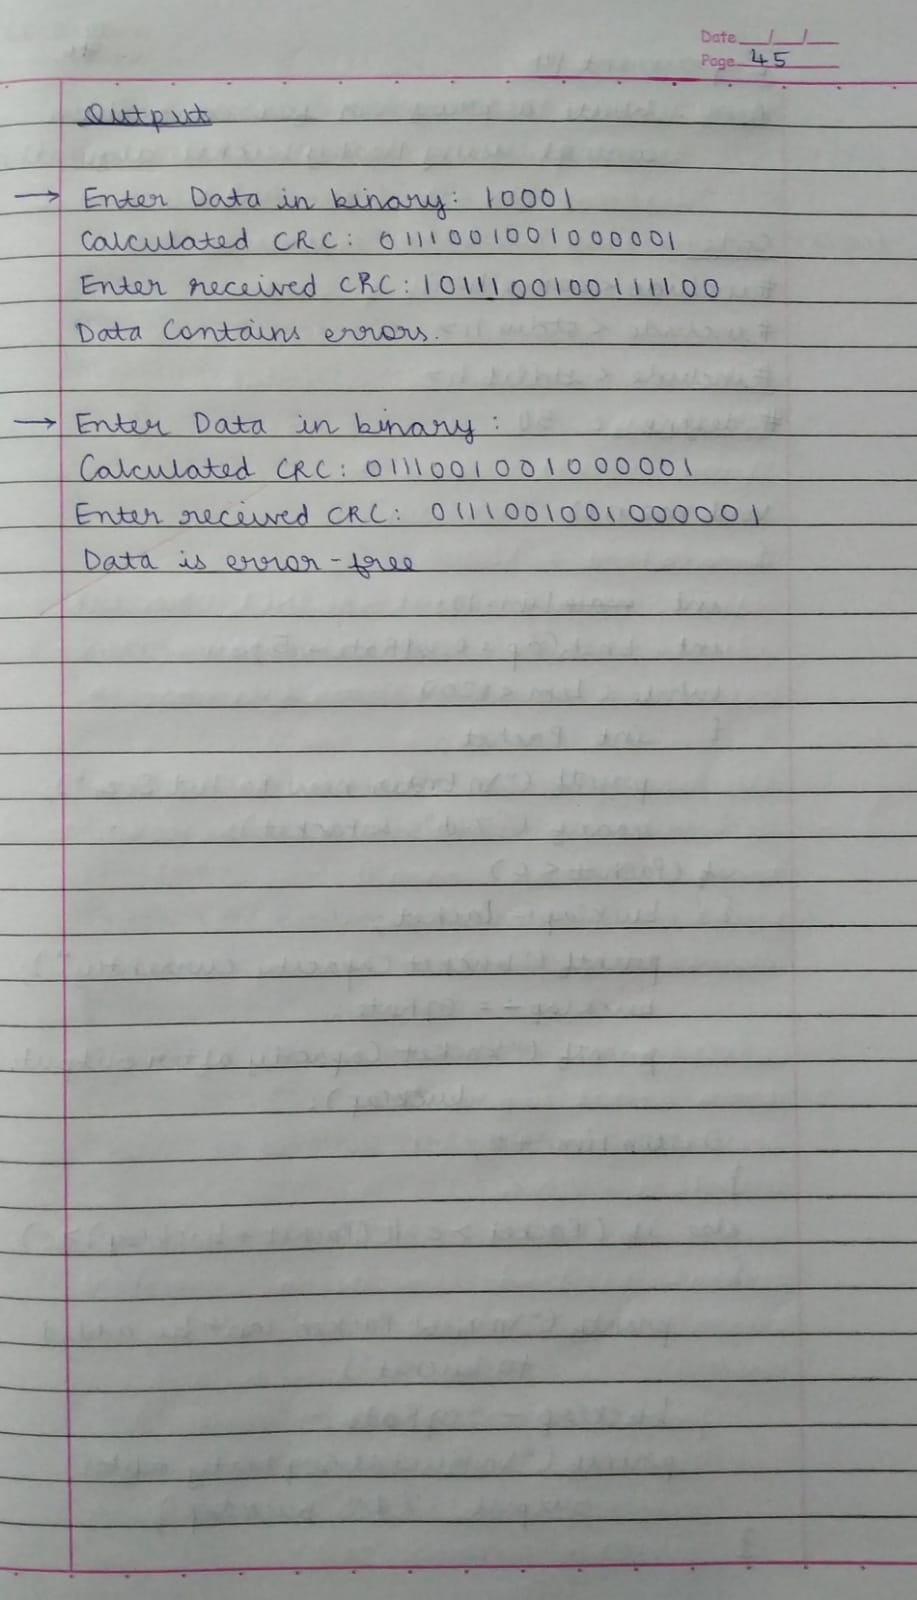 Date __/__/__
Page 45
Output
→ Enter Data in binary: 10001
Calculated CRC: 0111001001000001
Enter received CRC: 1011100100111100
Data Contains errors.
→ Enter Data in binary:
Calculated CRC: 0111001001000001
Enter received CRC: 0111001001000001
Data is error-free